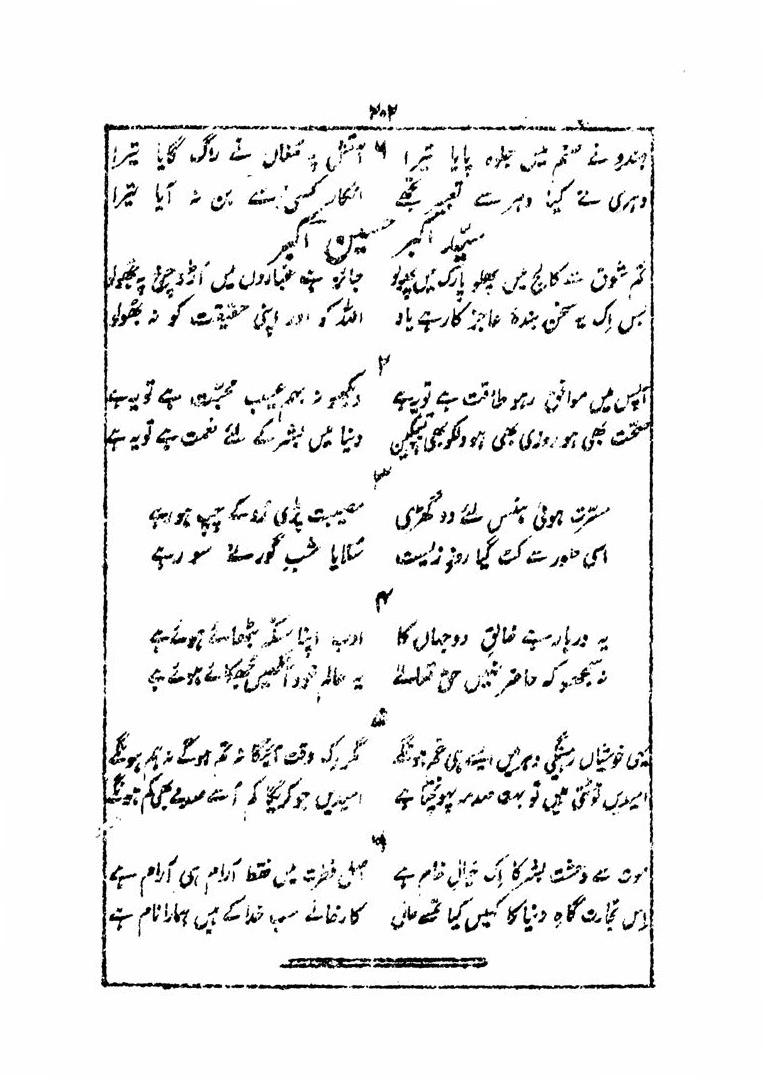 ۲۰۲
ہندو نے صنم میں جلوہ پایا تیرا ۶ آتش پہ مغاں نے راگ گایا تیرا
دہری نے کیا دہر سے تعبیر تجھے انکار کسی سے بن نہ آیا تیرا
سید اکبر حسین اکبر
تم شوق سے کالج میں پھلو پارک میں پھولو جائز ہے غباروں میں اڑو چرخ پہ جھولو
بس اک یہ سخن بندۂ عاجز کا رہے یاد اللہ کو اور اپنی حقیقت کو نہ بھولو
۲
آپس میں موافق رہو طاقت ہے تو یہ ہے دیکھو نہ بہم عیب محبت ہے تو یہ ہے
صحت بھی ہو روزی بھی ہو دلکو بھی ہو تسکین دنیا میں بشر کے لئے نعمت ہے تو یہ ہے
۳
مسرت ہوئی ہنس لئے دو گھڑی مصیبت پڑی رو کے چپ ہو رہے
اسی طور سے کٹ گیا روز زیست سلایا شب گور نے سو رہے
۴
یہ دربار ہے خالق دو جہاں کا ادب اپنا سکہ بٹھائے ہوئے ہے
نہ سمجھو کہ حاضر نہیں حق تعالے یہ عالم خود آنکھیں جھکائے ہوئے ہے
۵
یہی خوشیاں رہینگی دہر میں ایسے ہی غم ہونگے مگر اک وقت آئیگا نہ تم ہوگے نہ ہم ہونگے
امیدیں ٹوٹتی ہیں تو بہت صدمہ پہونچتا ہے امیدیں جو کریگا کم اُسے صدمے بھی کم ہونگے
۶
موت سے وحشت بشر کا اک خیال خام ہے اصل فطرت میں فقط آرام ہی آرام ہے
اس تجارت گاہ دنیا کا کہیں کیا تم سے حال کارخانے سب خدا کے ہیں ہمارا نام ہے